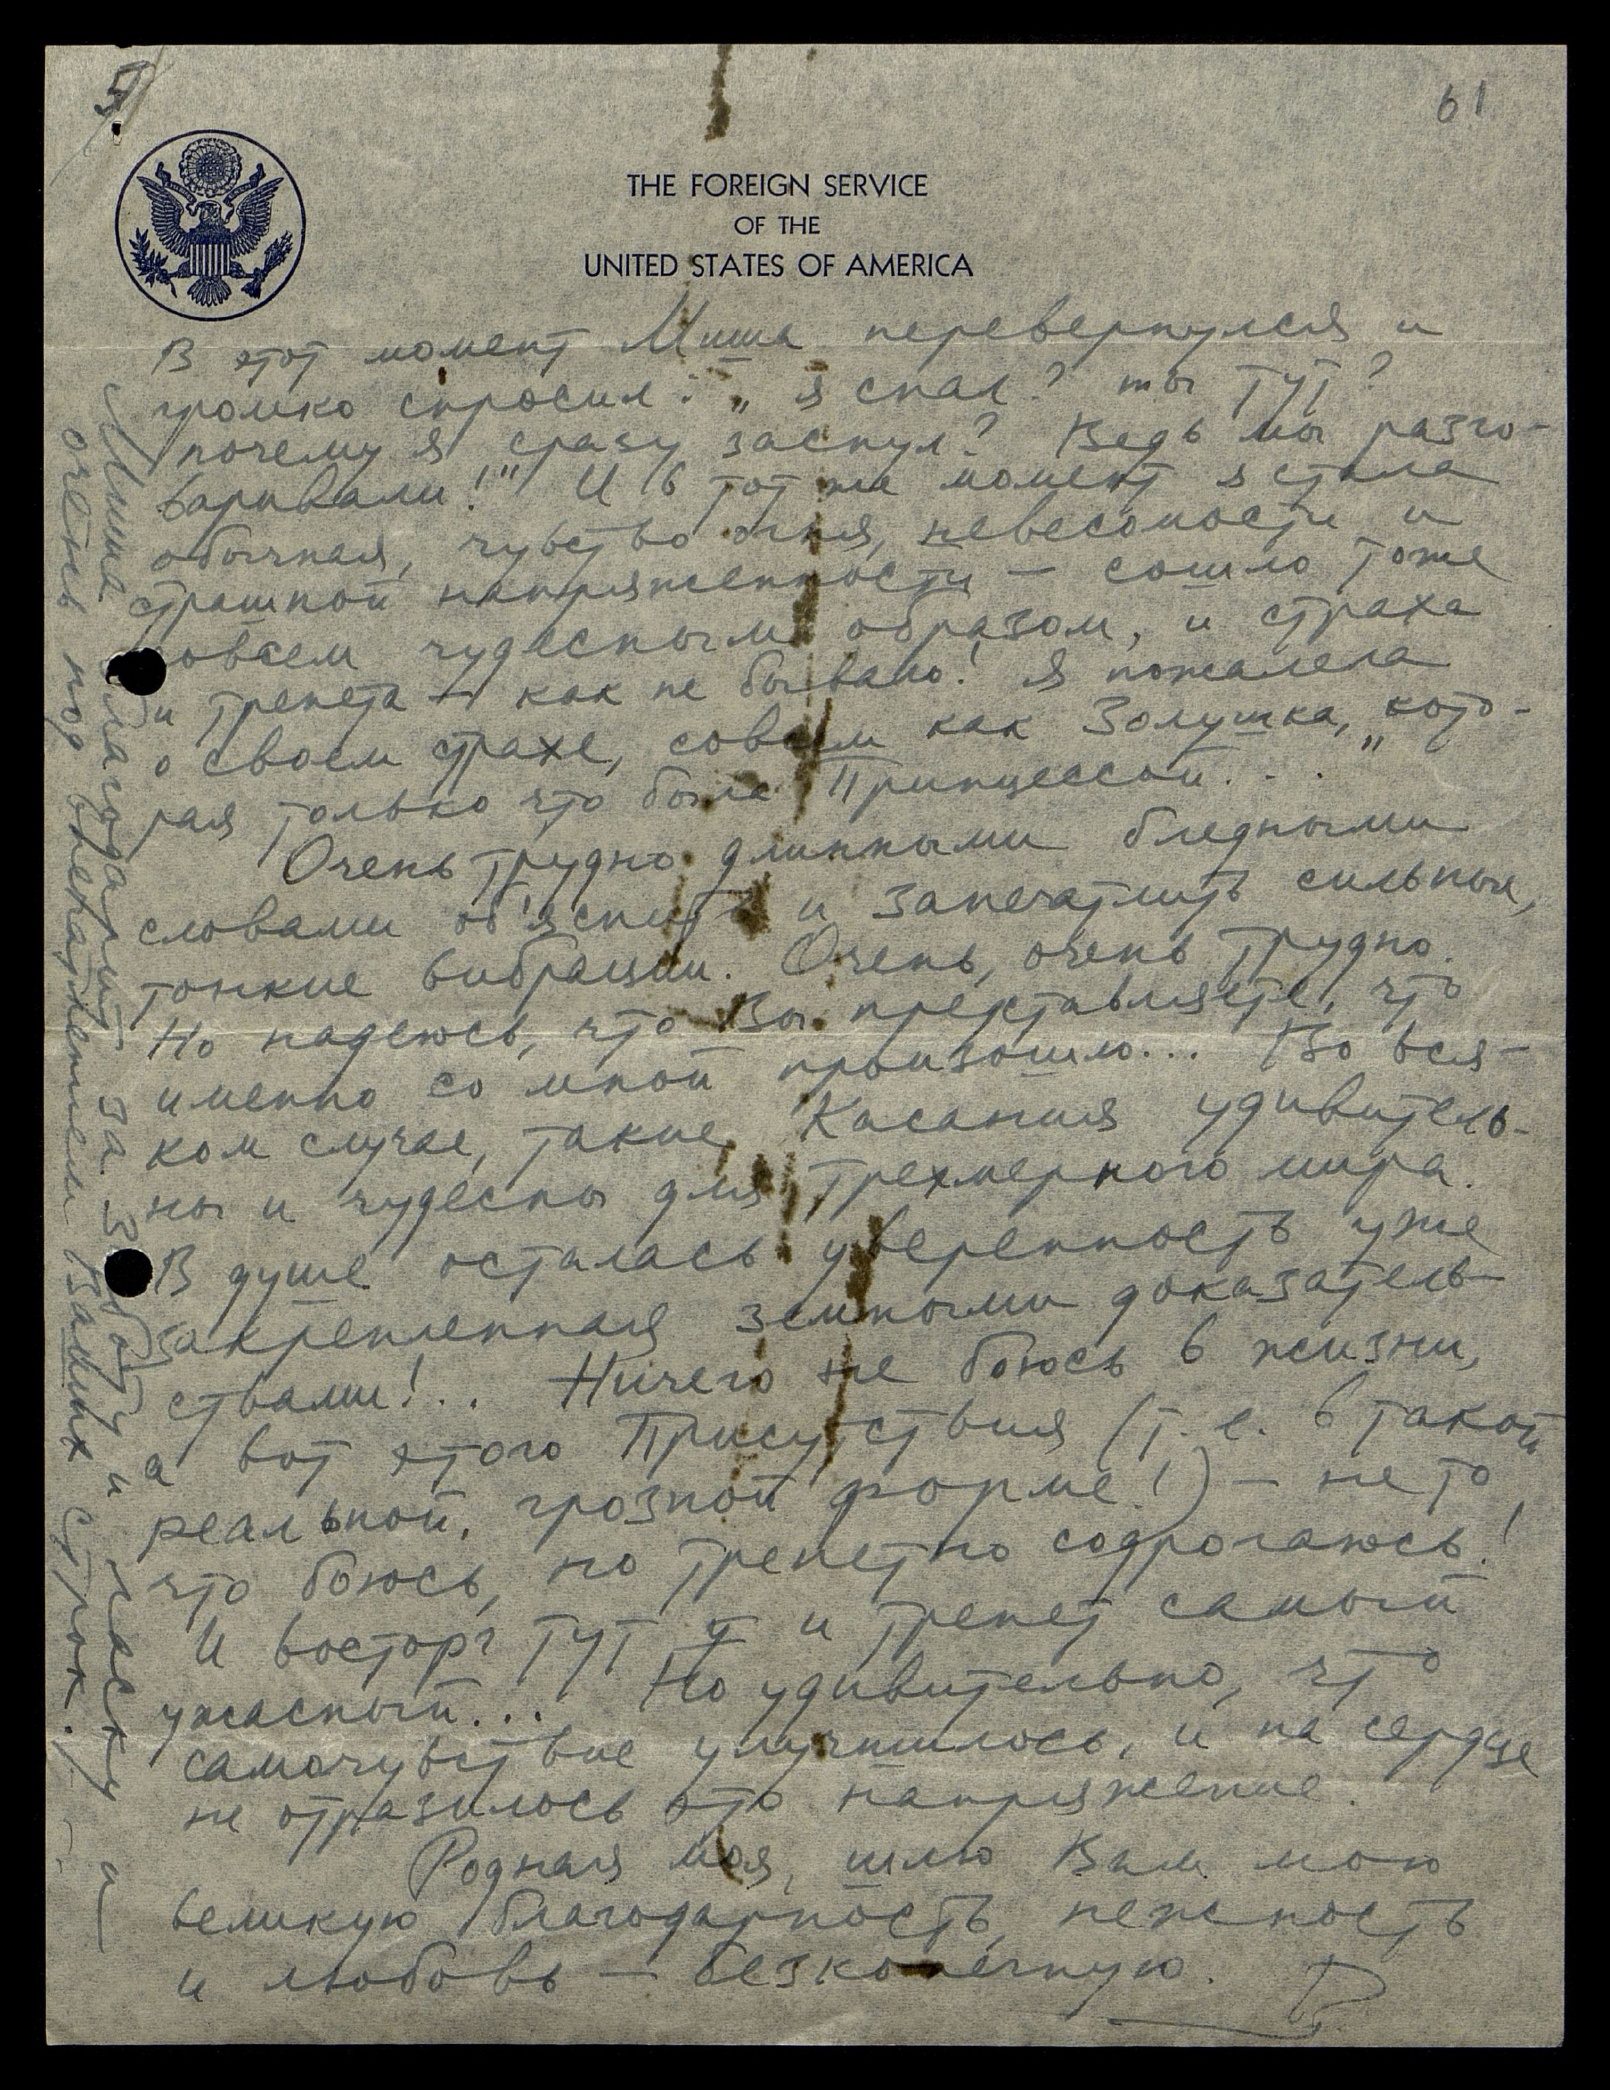 5.
61
THE FOREIGN SERVICE
OF THE
UNITED STATES OF AMERICA
В этот момент Миша перевернулся и
громко спросил: „я спал? ты тут?
почему я сразу заснул? Ведь мы разго-
варивали!" И в тот же момент я стала
обычная, чувство огня, невесомости и
страшной напряженности — сошло тоже
совсем чудесным образом, и страха
и трепета — как не бывало! Я пожалела
о своем страхе, совсем как Золушка, „кото-
рая только что была Принцессой...
Очень трудно длинными бледными
словами об'яснить и запечатлить сильные,
тонкие вибрации. Очень, очень трудно.
Но надеюсь, что Вы представляете, что
именно со мной произошло... Во вся-
ком случае, такие Касания удивитель-
ны и чудесны для трехмерного мира.
В душе осталась уверенность уже
закрепленная земными доказатель-
ствами!.. Ничего не боюсь в жизни,
а вот этого Присутствия (т. е. в такой
реальной, грозной форме!) — не то,
что боюсь, но трепетно содрогаюсь!
И восторг тут и трепет самый
ужасный... Но удивительно, что
самочувствие улучшилось, и на сердце
не отразилось это напряжение.
Родная моя, шлю Вам мою
великую благодарность, нежность
и любовь — безконечную.
Миша благодарит за заботу и ласку и —
очень под впечатлением Ваших строк.